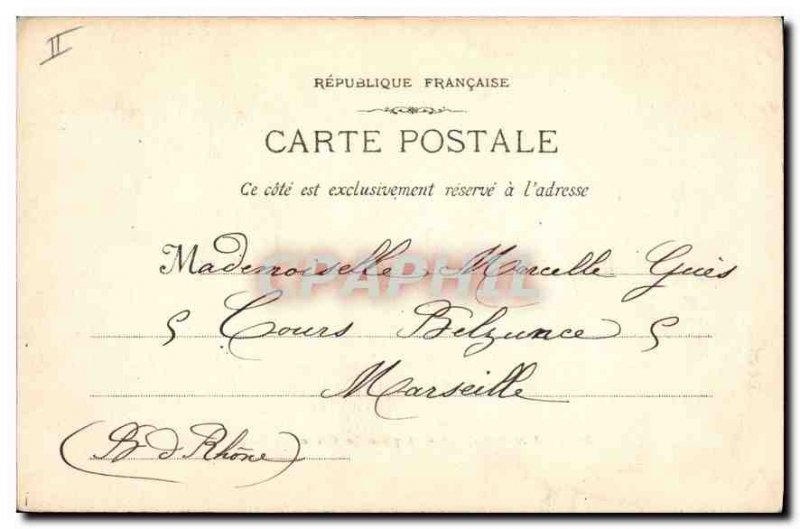 II
RÉPUBLIQUE FRANÇAISE
CARTE POSTALE
Ce côté est exclusivement réservé à l'adresse
Mademoiselle Marcelle Guès
5 Cours Belzunce 5
Marseille
(B d Rhône)
CPAPHIL